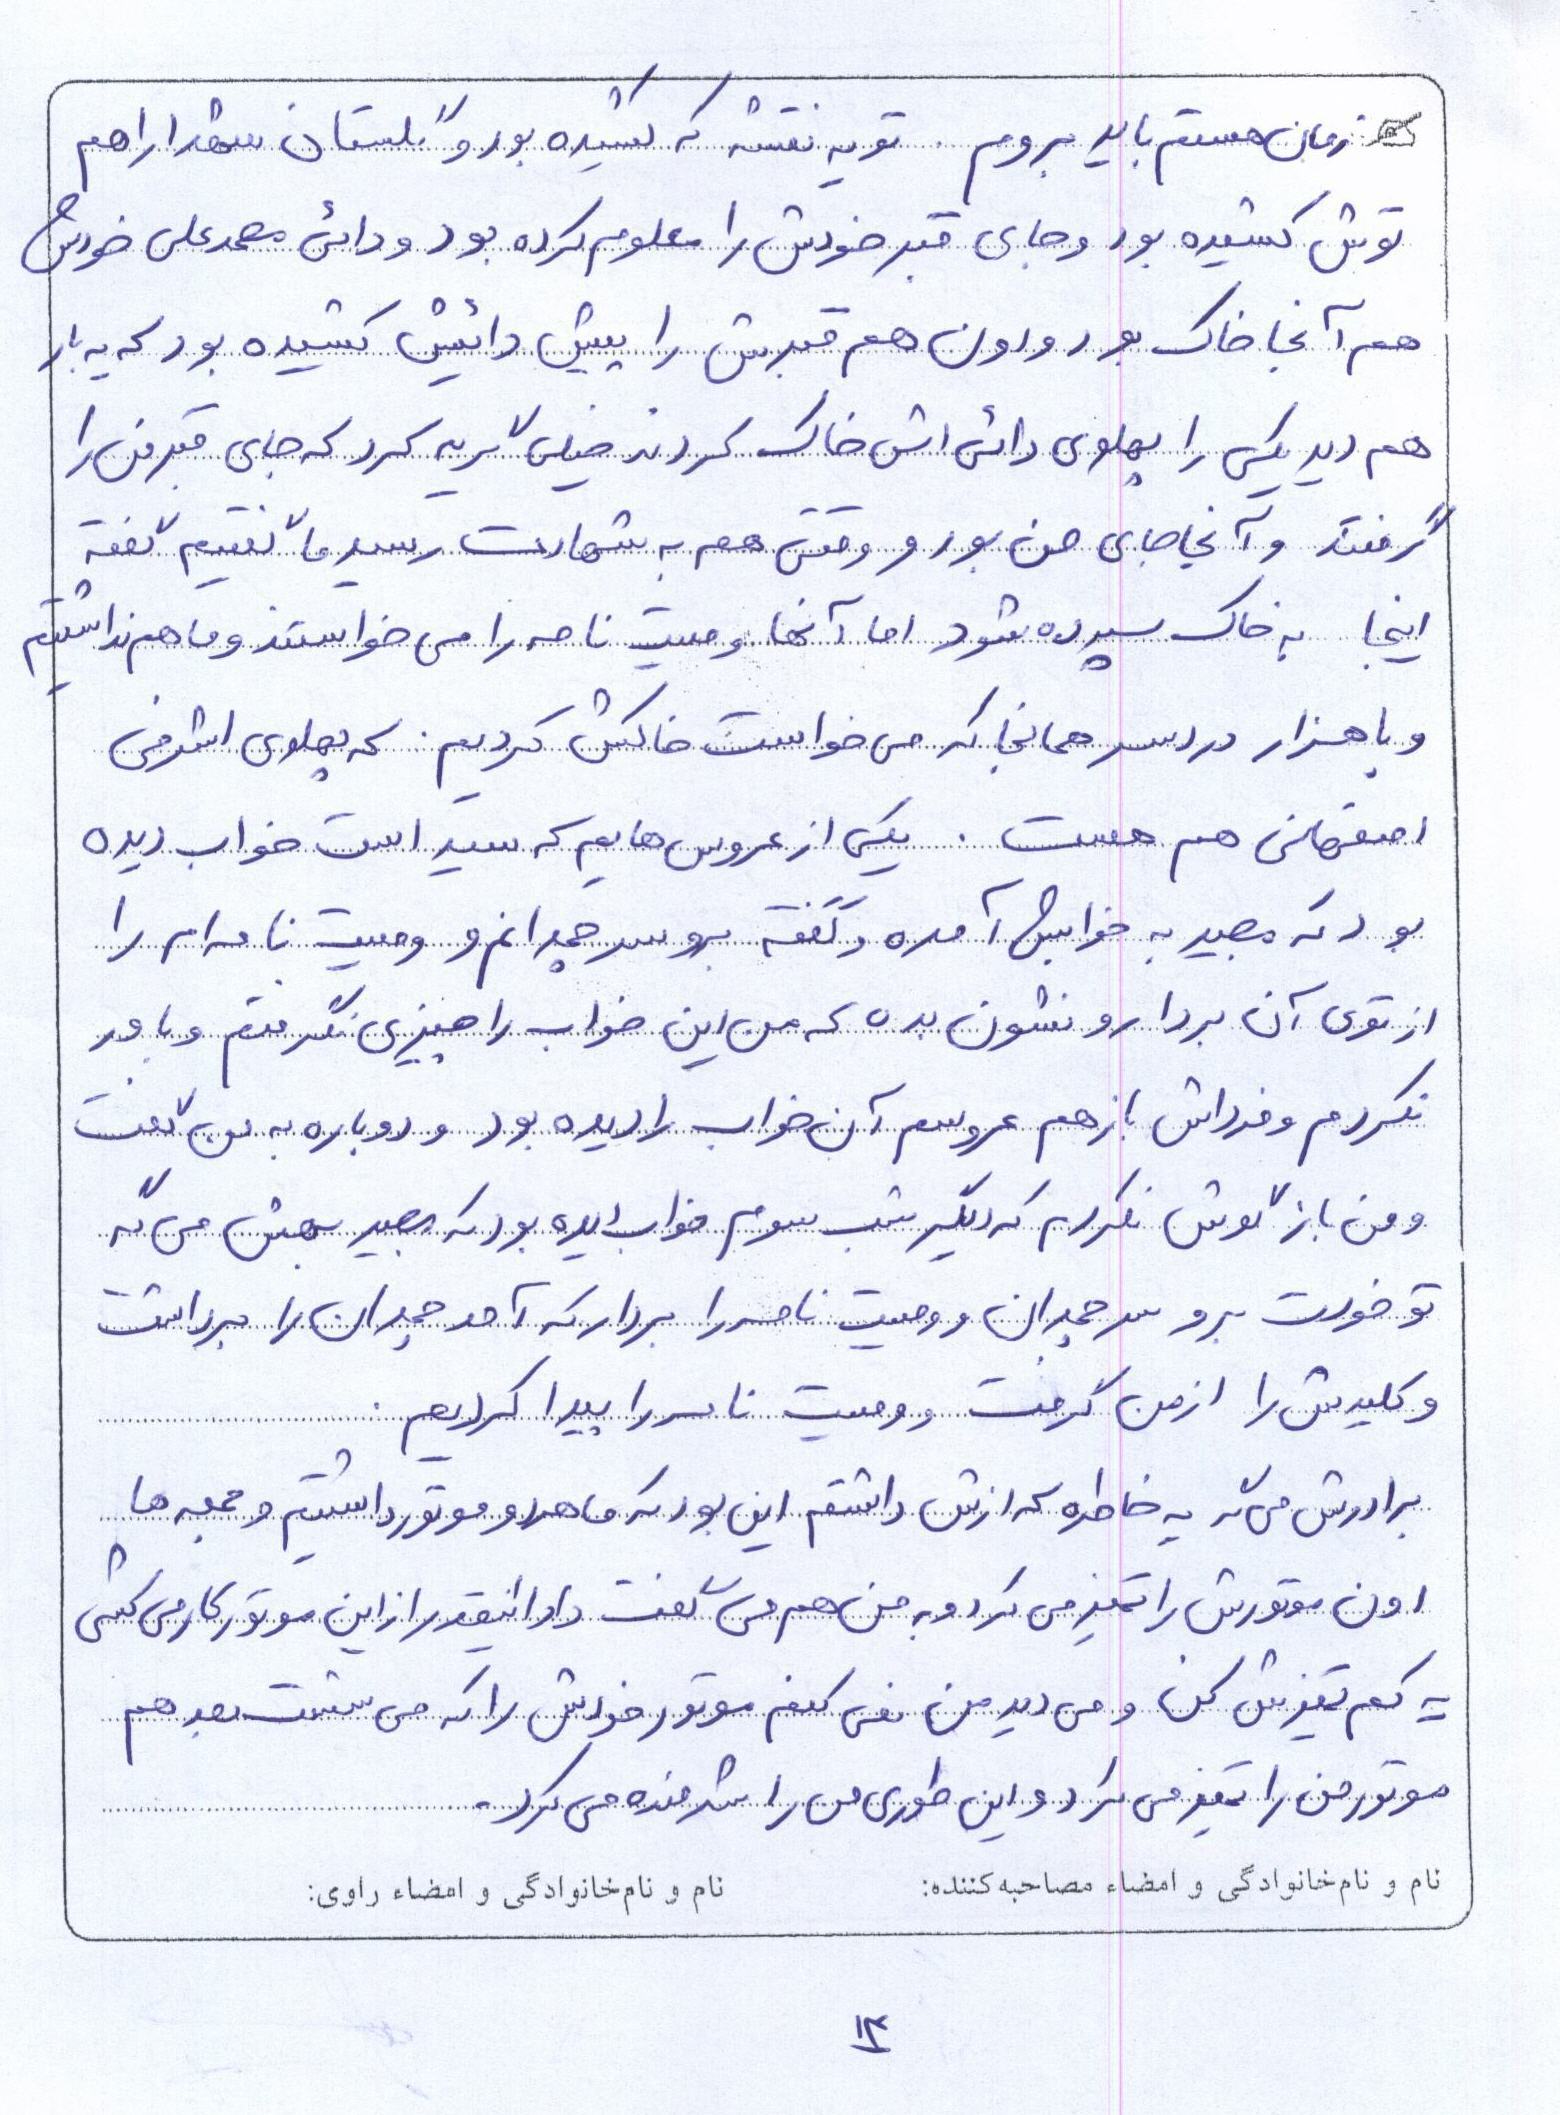 زمان هستم باید بروم . تویه نقشه که کشیده بود و گلستان شهدا را هم
توش کشیده بود و جای قبر خودش را معلوم کرده بود و دائی محمد علی خودش
هم آنجا خاک بود و اون هم قبرش را پیش دائیش کشیده بود که یه بار
هم دید یکی را پهلوی دائی اش خاک کردند خیلی گریه کرد که جای قبر من را
گرفتند و آنجا جای من بود و وقتی هم به شهادت رسید ما گفتیم گفته
اینجا به خاک سپرده شود اما آنها وصیت نامه را می خواستند و ما هم نداشتیم
و با هزار دردسر همانجا که می خواست خاکش کردیم . که پهلوی اشرفی
اصفهانی هم هست . یکی از عروس هایم که سید است خواب دیده
بود که مجید به خوابش آمده و گفته برو سر چمدانم و وصیت نامه ام را
از توی آن بردار و نشون بده که من این خواب را چیزی نگرفتم و باور
نکردم و فرداش باز هم عروسم آن خواب را دیده بود و دوباره به من گفت
و من باز گوش نکردم که دیگر شب سوم خواب دیده بود که مجید بهش می گه
تو خودت برو سر چمدان و وصیت نامه را بردار که آمد چمدان را برداشت
و کلیدش را از من گرفت و وصیت نامه را پیدا کردیم .
برادرش می گه یه خاطره که ازش داشتم این بود که ما هردو موتور داشتیم و جمعه ها
اون موتورش را تمیز می کرد و به من هم می گفت داداانیقدر از این موتور کار می کشی
یه کم تمیزش کن و می دید من نمی کنم موتور خودش را که می شست بعد هم
موتور من را تمیز می کرد و این طوری من را شرمنده می کرد .
نام و نام خانوادگی و امضاء مصاحبه کننده: نام و نام خانوادگی و امضاء راوی: